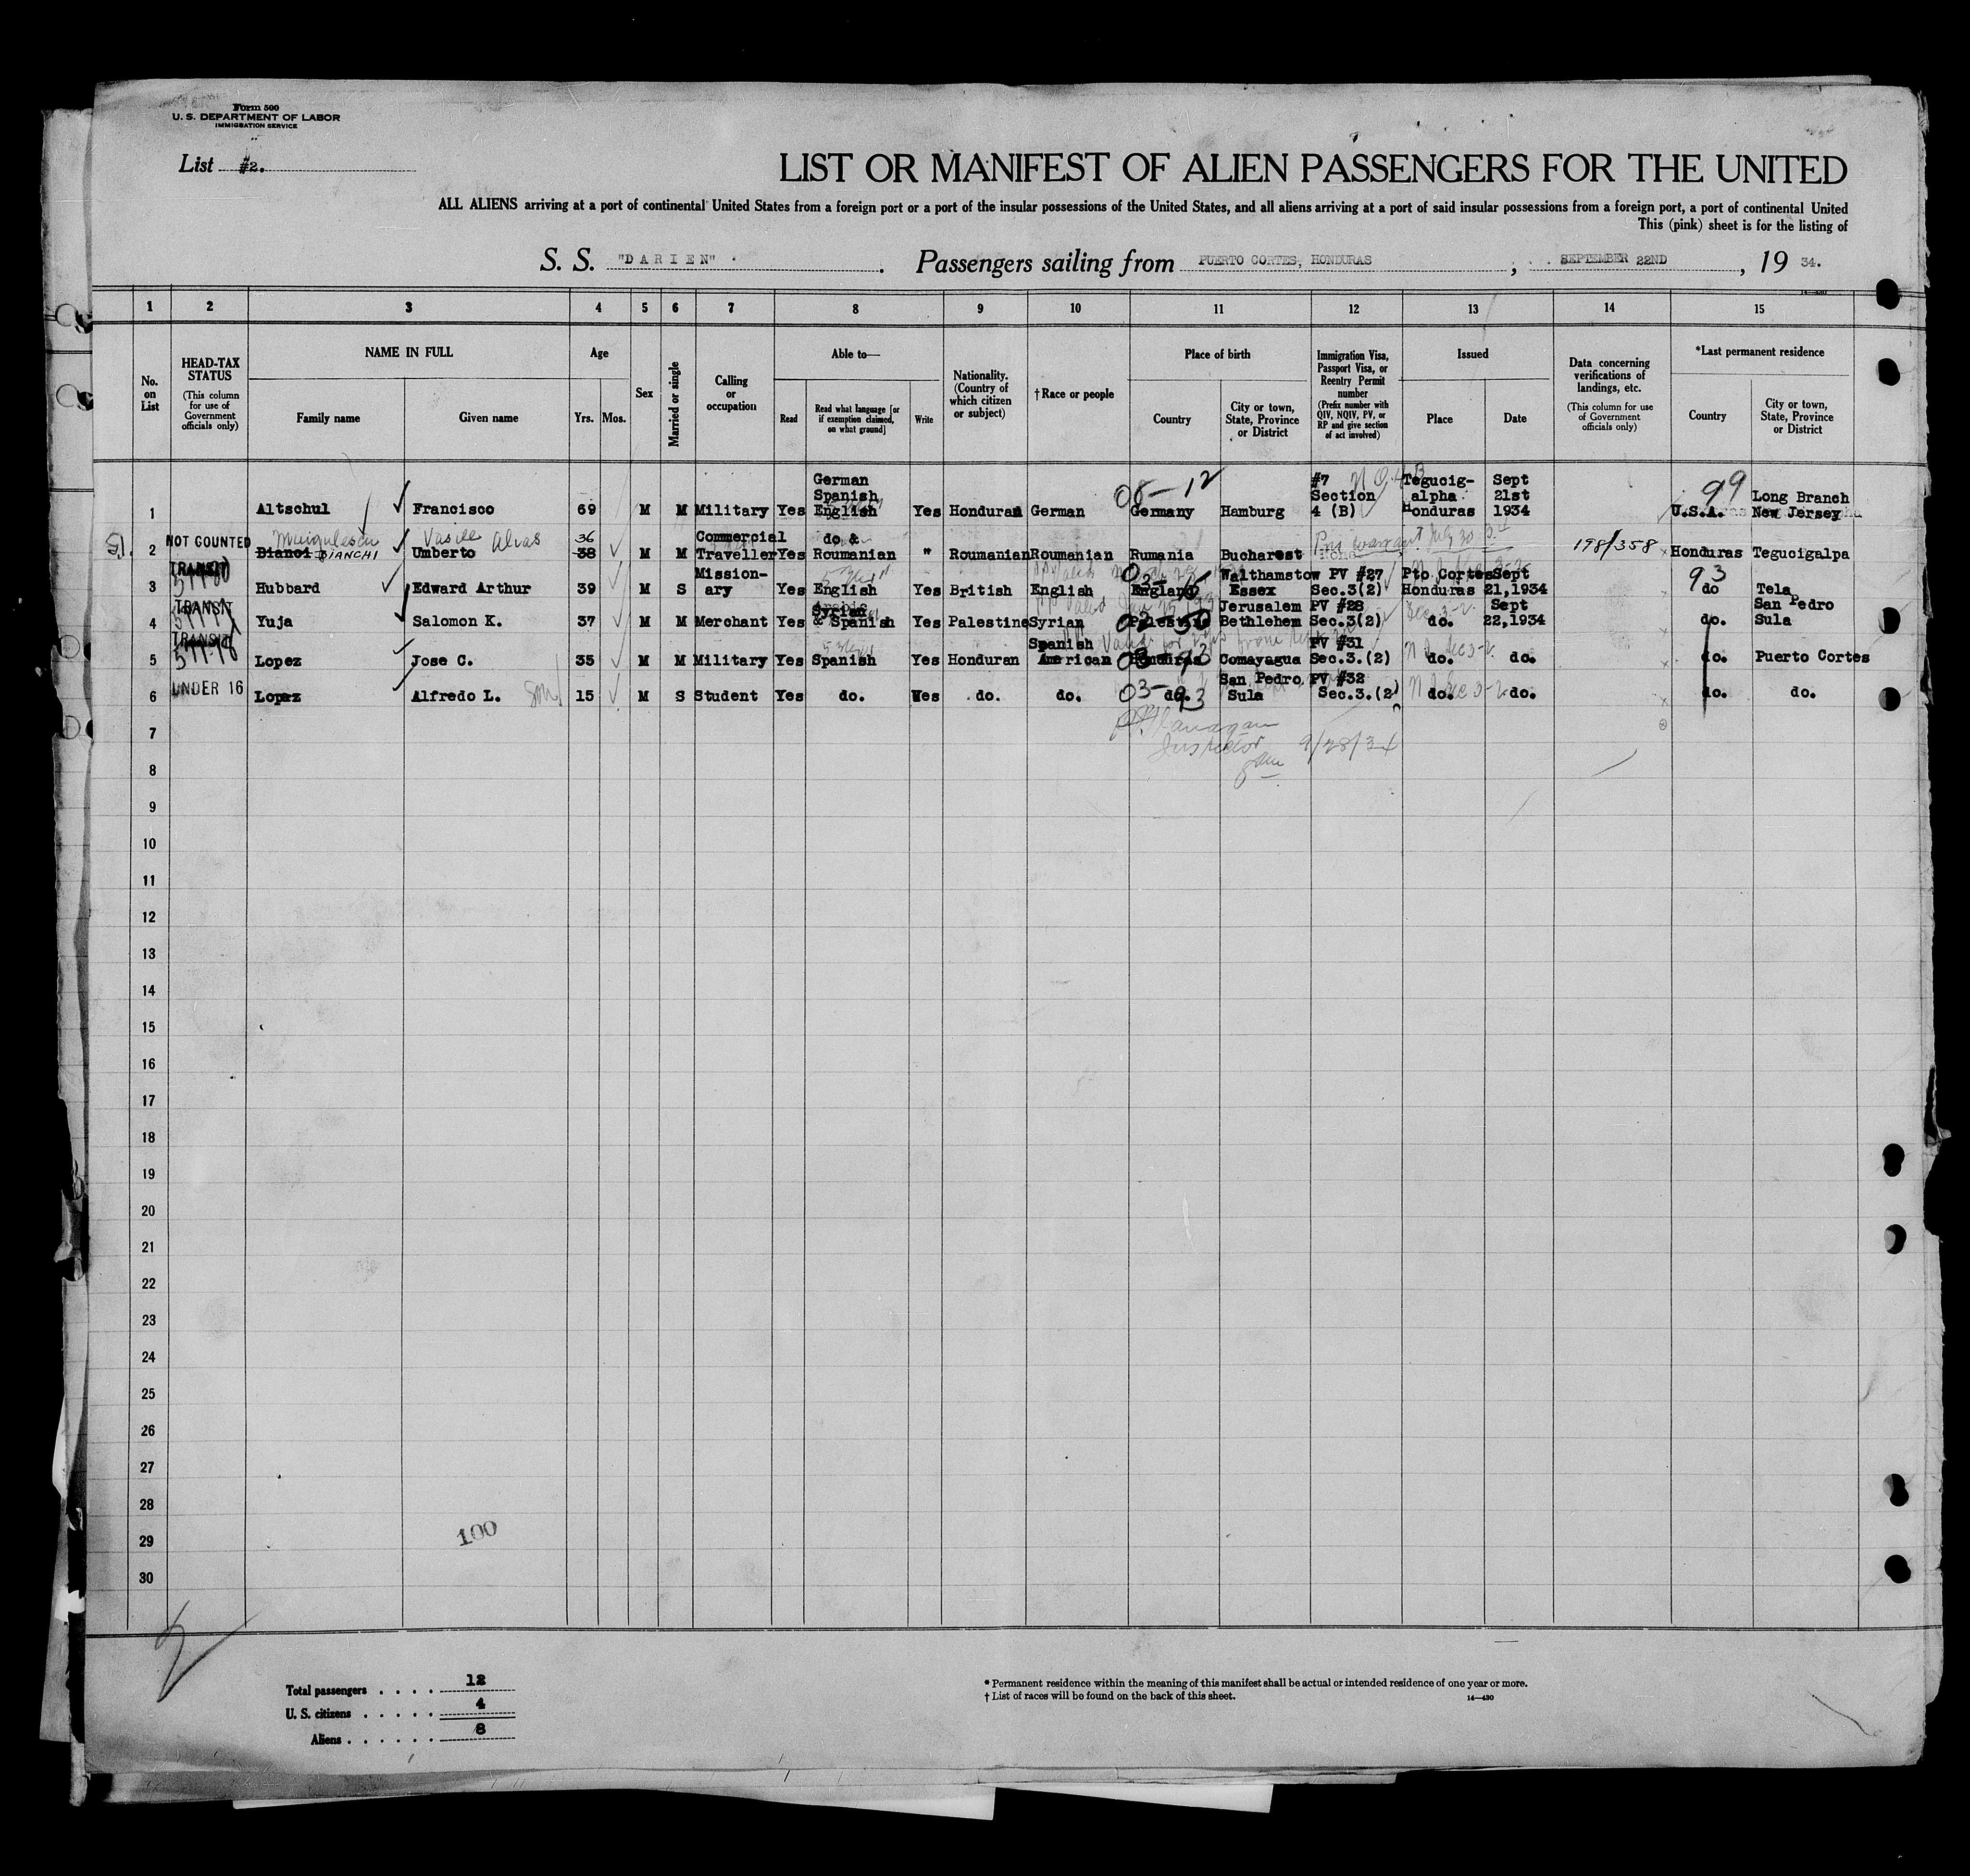 Form 500
U. S. DEPARTMENT OF LABOR
IMMIGRATION SERVICE
List #2.
LIST OR MANIFEST OF ALIEN PASSENGERS FOR THE UNITED
ALL ALIENS arriving at a port of continental United States from a foreign port or a port of the insular possessions of the United States, and all aliens arriving at a port of said insular possessions from a foreign port, a port of continental United
This (pink) sheet is for the listing of
S. S. "DARIEN" . Passengers sailing from PUERTO CORTES, HONDURAS , SEPTEMBER 22ND , 19 34.
1 2 3 4 5 6 7 8 9 10 11 12 13 14 15
No. on List
HEAD-TAX STATUS (This column for use of Government officials only)
NAME IN FULL
Family name
Given name
Age
Yrs.
Mos.
Sex
Married or single
Calling or occupation
Able to—
Read
Read what language [or if exemption claimed, on what ground]
Write
Nationality. (Country of which citizen or subject)
† Race or people
Place of birth
Country
City or town, State, Province or District
Immigration Visa, Passport Visa, or Reentry Permit number (Prefix number with QIV, NQIV, PV, or RP and give section of act involved)
Issued
Place
Date
Data concerning verifications of landings, etc. (This column for use of Government officials only)
*Last permanent residence
Country
City or town, State, Province or District
1 Altschul Francisco 69 M M Military Yes German Spanish English Yes Honduran German 08-12 Germany Hamburg #7 Section 4 (B) Tegucigalpha Honduras Sept 21st 1934 99 U.S.A. Long Branch New Jersey
2 NOT COUNTED Bianci BIANCHI Vasile alias Umberto 36 38 M M Commercial Traveller Yes do & Roumanian " Roumanian Roumanian Rumania Bucharest 198/358 Honduras Tegucigalpa
3 TRANSIT Hubbard Edward Arthur 39 M S Mission-ary Yes English Yes British English England Walthamstow Essex PV #27 Sec.3(2) Pto Cortes Honduras Sept 21,1934 93 do Tela
4 TRANSIT Yuja Salomon K. 37 M M Merchant Yes Syrian & Spanish Yes Palestine Syrian Palestine Jerusalem Bethlehem PV #28 Sec.3(2) do. Sept 22,1934 do. San Pedro Sula
5 TRANSIT Lopez Jose C. 35 M M Military Yes Spanish Yes Honduran Spanish American Honduras Comayagua PV #31 Sec.3.(2) do. do. do. Puerto Cortes
6 UNDER 16 Lopez Alfredo L. Son 15 M S Student Yes do. Yes do. do. 03-93 do. San Pedro Sula PV #32 Sec.3.(2) do. do. do. do.
7 Inspector 9/28/34
8
9
10
11
12
13
14
15
16
17
18
19
20
21
22
23
24
25
26
27
28
29
30
100
Total passengers . . . . 12
U. S. citizens . . . . . 4
Aliens . . . . . . 8
* Permanent residence within the meaning of this manifest shall be actual or intended residence of one year or more.
† List of races will be found on the back of this sheet. 14—430